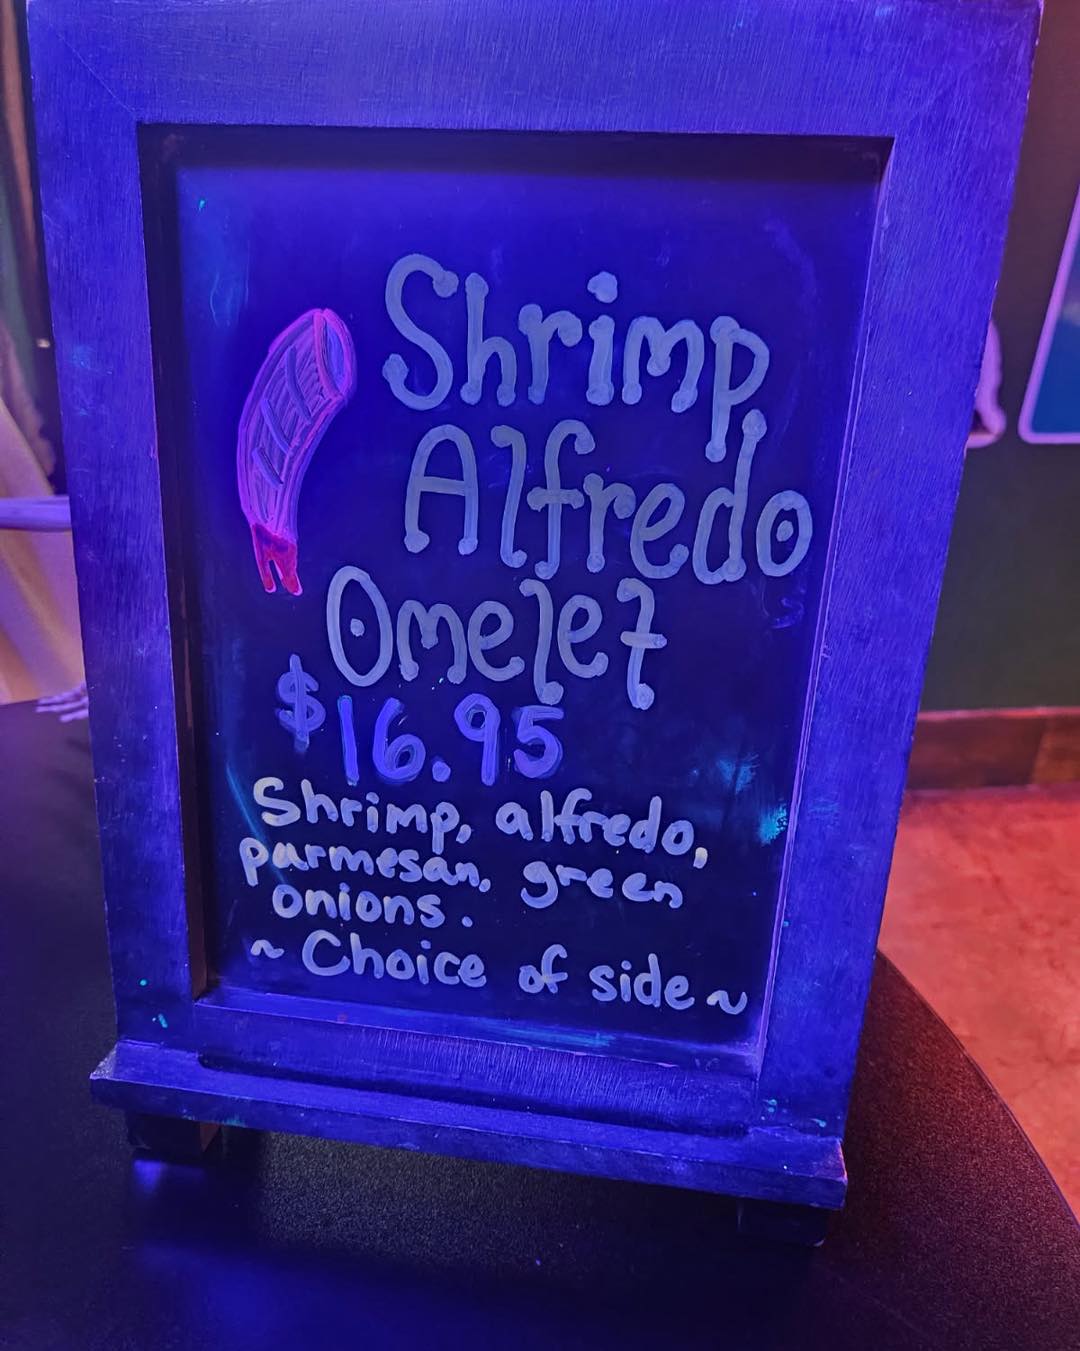 Shrimp
Alfredo
Omelet
$16.95
Shrimp, alfredo,
parmesan, green
onions.
~ Choice of side ~